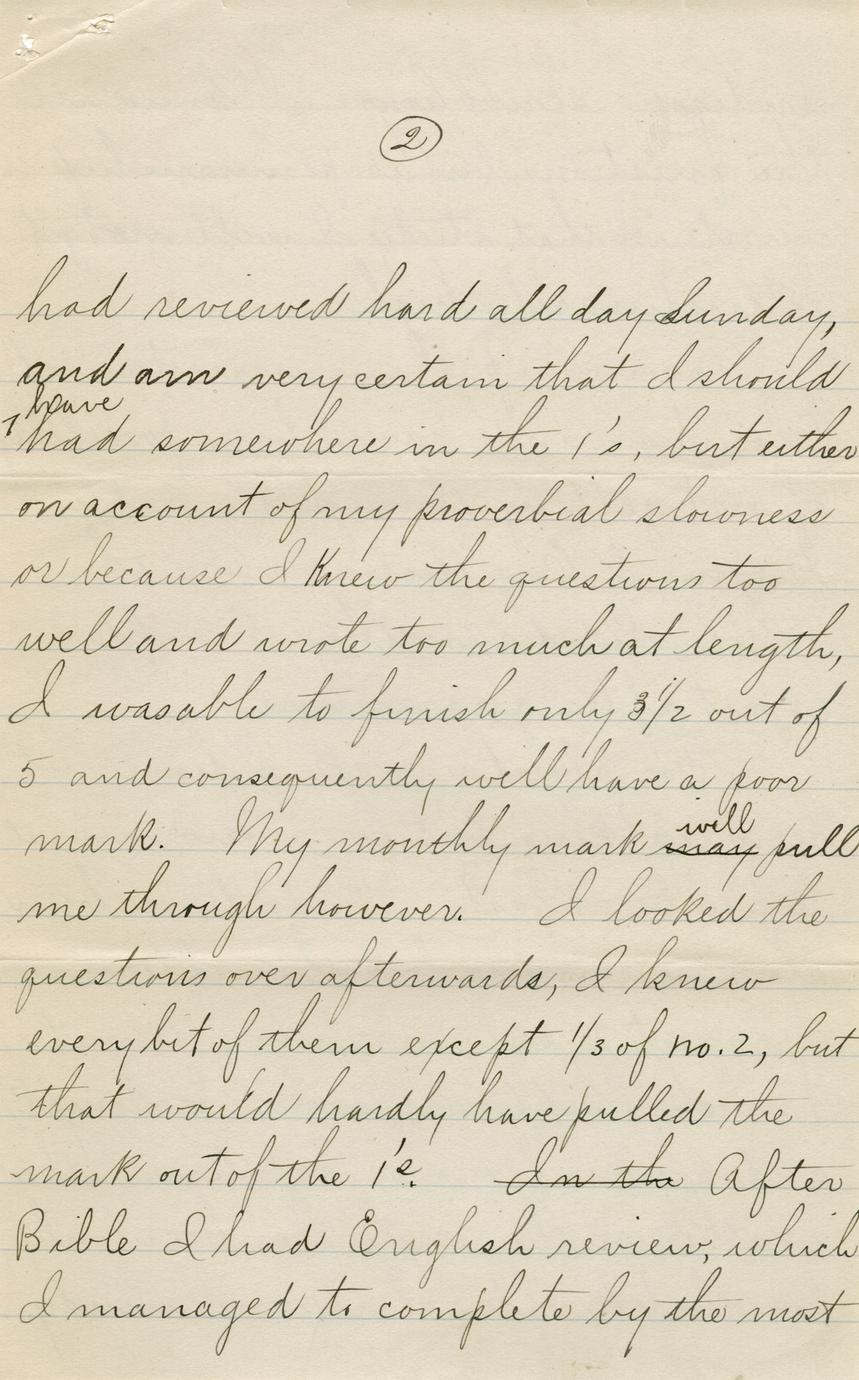 2
had reviewed hard all day Sunday,
and am very certain that I should
have
had somewhere in the 1's, but either
on account of my proverbial slowness
or because I knew the questions too
well and wrote too much at length,
I was able to finish only 3 1/2 out of
5 and consequently will have a poor
mark. My monthly mark may will pull
me through however. I looked the
questions over afterwards, I knew
every bit of them except 1/3 of no. 2, but
that would hardly have pulled the
mark out of the 1's. In the After
Bible I had English review, which
I managed to complete by the most